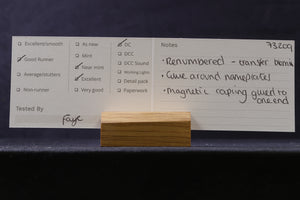 Excellent/smooth
Good Runner
Average/stutters
Non-runner
Tested By
Faye
As new
Mint
Near mint
Excellent
Very good
DC
DCC
DCC Sound
Working Lights
Detail pack
Paperwork
Notes 73209
• Renumbered - transfer
• Glue around nameplates
• Magnetic coupling glued to
one end